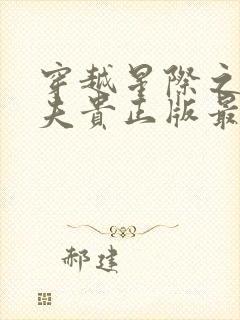 穿越星际之
夫贵正版最
郝建